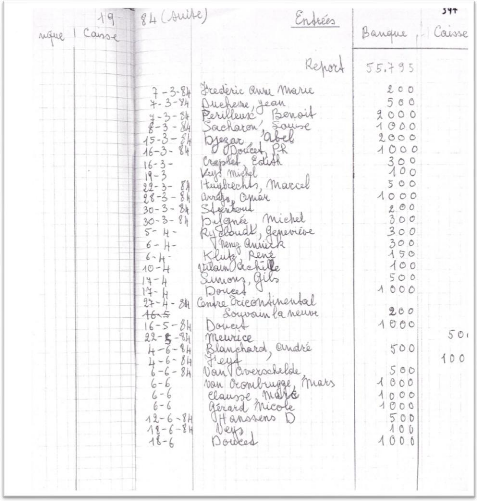 19 84 (Suite) Entrées 344
nque Caisse Banque Caisse
Report 55.793
7-3-84 Frédéric Anne Marie 200
7-3-84 Duchesne, Jean 500
7-3-84 Perilleux, Benoit 2000
8-3-84 Sacharow, Louise 1000
15-3-84 Djezar, Abel 2000
16-3-84 Doucet, Ph 1000
16-3- Craplet, Edith 300
19-3 Veys Michel 100
22-3-84 Huybrechts, Marcel 500
28-3-84 Omar 1000
30-3-84 200
30-3-84 Michel 300
5-4- Geneviève 300
6-4- Annick 300
6-4- Klutz, René 150
10-4 Vilain Achille 100
17-4 Simons, Gils 500
17-4 Doucet 1000
27-4-84 Centre Tricontinental
16-5 Louvain la neuve 200
16-5-84 Doucet 1000
22-5-84 Meurice 50
4-6-84 Blanchard, André 500
4-6-84 100
6-6-84 Van Overschelde 500
6-6 Van Crombrugge, Mars 1000
6-6 Clausse, Marc 1000
6-6 Gérard Nicole 1000
12-6-84 Hanssens D 500
18-6-84 Veys 100
18-6 Doucet 1000